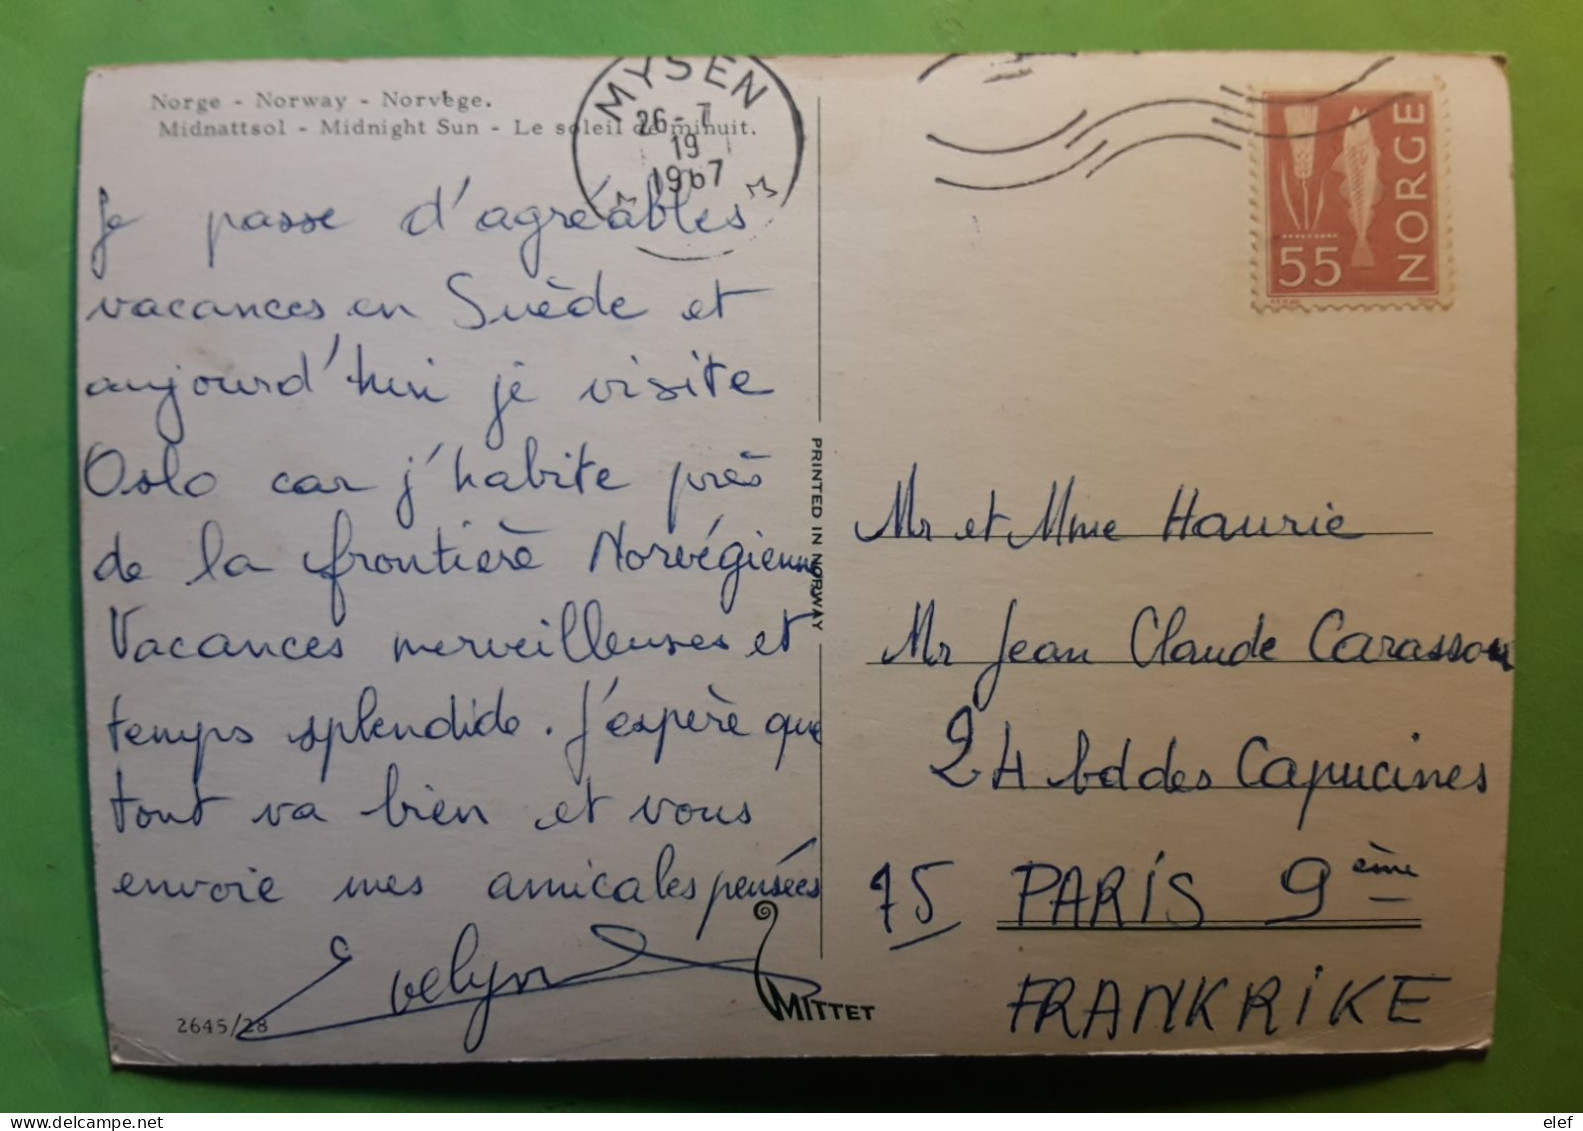 Norge - Norway - Norvège.
Midnattsol - Midnight Sun - Le soleil de minuit.
MYSEN
26-7
19
1967
NORGE
55
Je passe d'agréables
vacances en Suède et
aujourd'hui je visite
Oslo car j'habite près
de la frontière Norvégienne
Vacances merveilleuses et
temps splendide. J'espère que
tout va bien et vous
envoie mes amicales pensées
Evelyn
2645/28
PRINTED IN NORWAY
MITTET
Mr et Mme Haurie
Mr Jean Claude Carassou
24 bd des Capucines
75 PARIS 9ème
FRANKRIKE
www.delcampe.net
elef